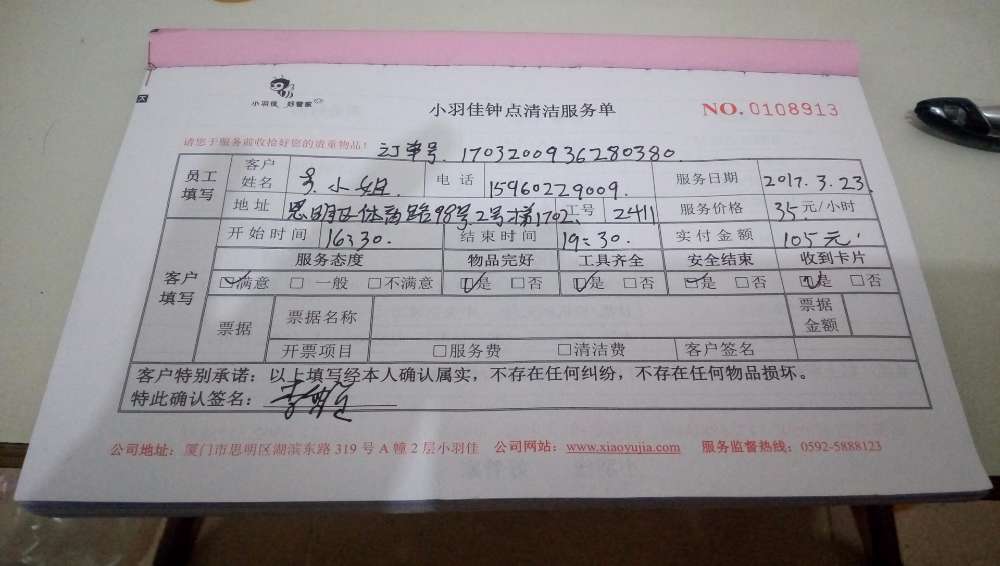 小羽佳 好管家
小羽佳钟点清洁服务单
NO.0108913
请您于服务前收拾好您的贵重物品！
订单号.1703200936280380.
员工填写
客户姓名 小姐. 电话 15960229009. 服务日期 2017.3.23.
地址 思明区体育路98号2号梯1702 工号 2411 服务价格 35元/小时
客户填写
开始时间 16:30. 结束时间 19:30. 实付金额 105元
服务态度 物品完好 工具齐全 安全结束 收到卡片
☑满意 □一般 □不满意 ☑是 □否 ☑是 □否 ☑是 □否 ☑是 □否
票据 票据名称 票据金额
开票项目 □服务费 □清洁费 客户签名
客户特别承诺：以上填写经本人确认属实，不存在任何纠纷，不存在任何物品损坏。
特此确认签名：
公司地址：厦门市思明区湖滨东路319号A幢2层小羽佳 公司网站：www.xiaoyujia.com 服务监督热线：0592-5888123